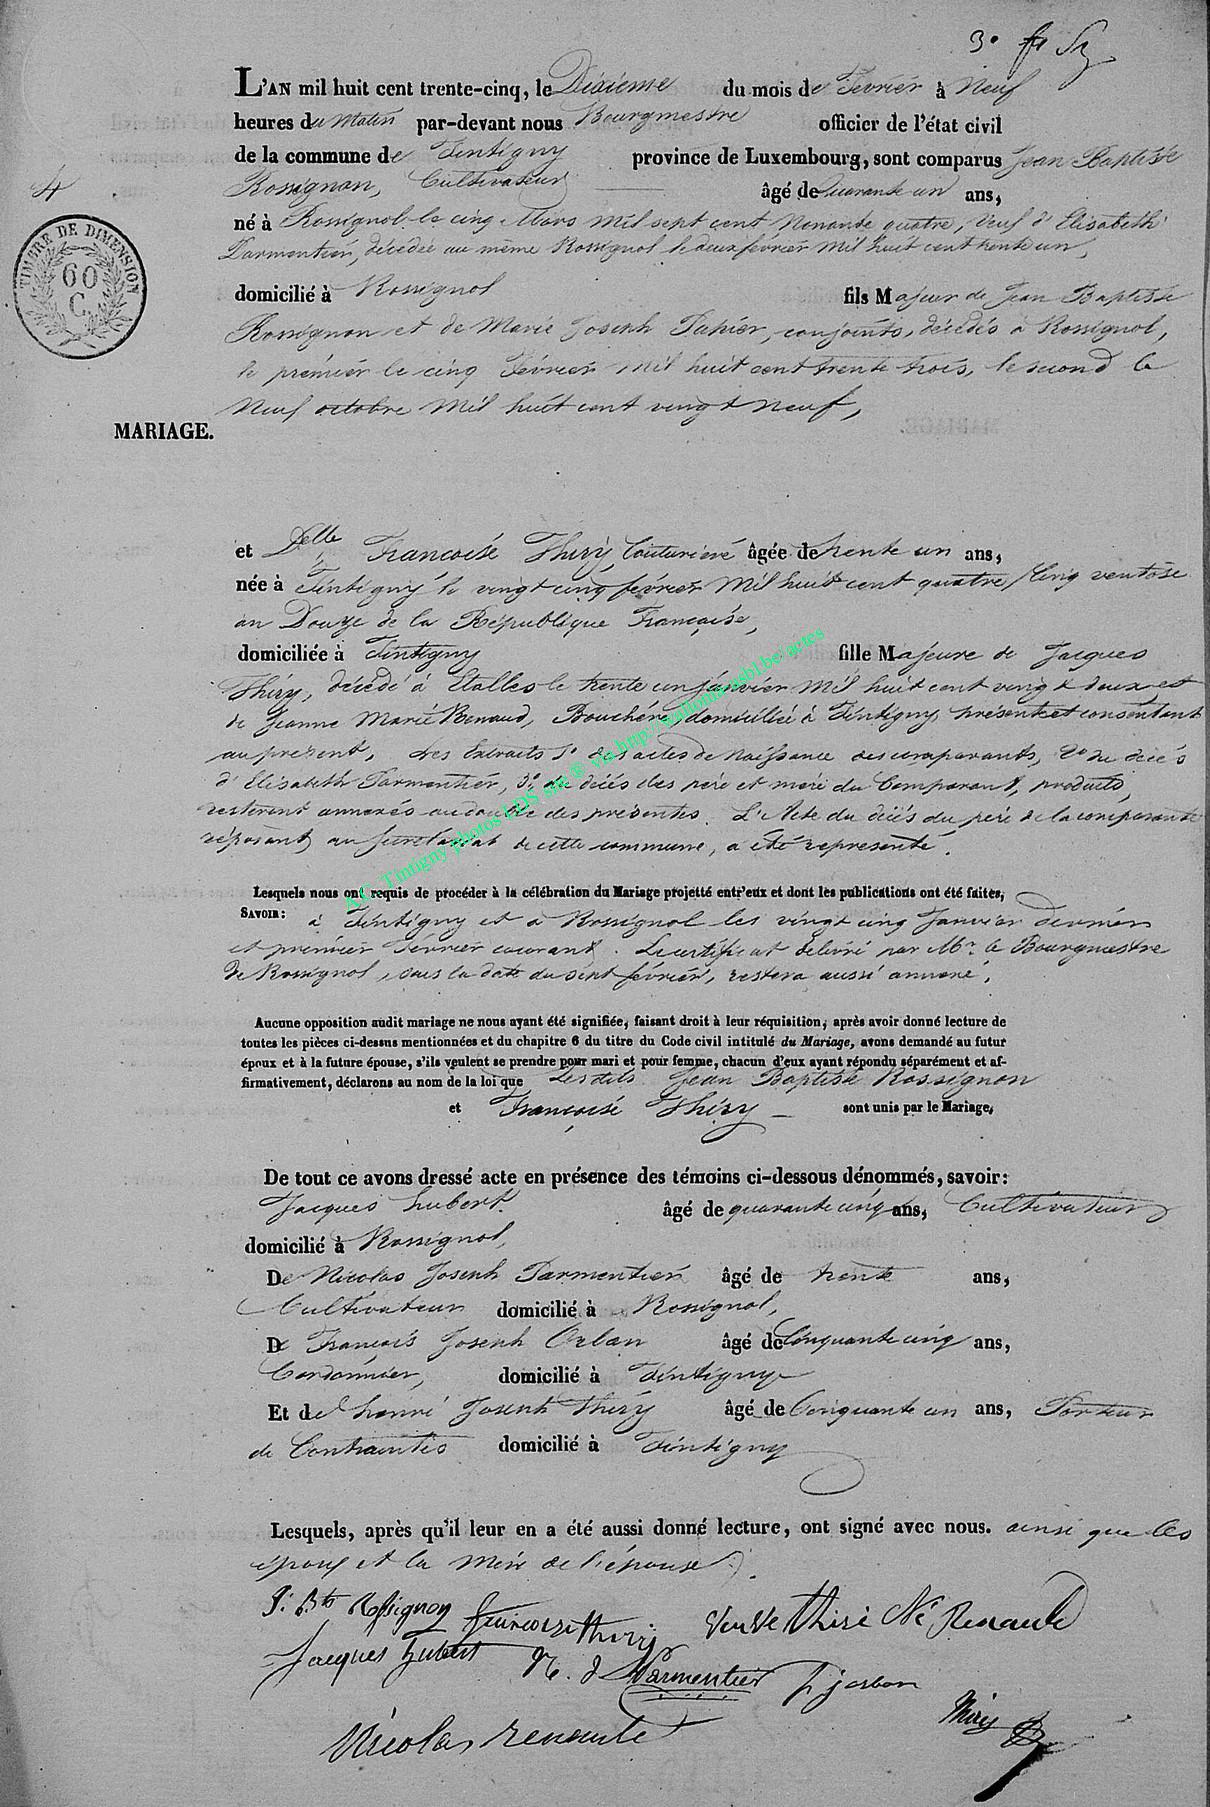 3.e
L'AN mil huit cent trente-cinq, le Dixieme du mois de Fevrier à Neuf
heures du Matin par-devant nous Bourgmestre officier de l'état civil
de la commune de Tintigny province de Luxembourg, sont comparus Jean Baptiste
4
Rossignon, Cultivateur âgé de Quarante un ans,
né à Rossignol le cinq Mars Mil sept cent Nonante quatre, veuf d'Elisabeth
Parmentier, décédée au même Rossignol le deux février Mil huit cent trente un,
TIMBRE DE DIMENSION
60
C.
domicilié à Rossignol fils Majeur de Jean Baptiste
Rossignon et de Marie Joseph Papier, conjoints, décédés à Rossignol,
le premier le cinq Février Mil huit cent trente trois, le second le
Neuf octobre Mil huit cent vingt Neuf,
MARIAGE.
et Delle Françoise Thiry, Couturiere âgée de trente un ans,
née à Tintigny le vingt cinq février Mil huit cent quatre / Cinq ventose
an Douze de la République Française,
domiciliée à Tintigny fille Majeure de Jacques
Thiry, décédé à Etalle le trente un janvier Mil huit cent vingt deux et
de Jeanne Marie Renaud, Bouchére, domiciliée à Tintigny présente et consentant
au present, Les Extraits 1° des actes de Naissance des comparants, 2° du décés
d'Elisabeth Parmentier, 3° de décés des pére et mére du Comparant, produits,
resteront annexés au double des présentes. L'Acte du décés du pére de la comparante
réposant au secretariat de cette commune, a été representé.
A.C. Tintigny photos LDS site ® via http://wallonia-asbl.be/actes
Lesquels nous ont requis de procéder à la célébration du Mariage projetté entr'eux et dont les publications ont été faites,
SAVOIR: à Tintigny et à Rossignol les vingt cinq Janvier dernier
et premier Février courant. Le certificat délivré par Mr. le Bourgmestre
de Rossignol, sous la date du sept février, restera aussi annexé.
Aucune opposition audit mariage ne nous ayant été signifiée, faisant droit à leur réquisition, après avoir donné lecture de
toutes les pièces ci-dessus mentionnées et du chapitre 6 du titre du Code civil intitulé du Mariage, avons demandé au futur
époux et à la future épouse, s'ils veulent se prendre pour mari et pour femme, chacun d'eux ayant répondu séparément et af-
firmativement, déclarons au nom de la loi que Lesdits Jean Baptiste Rossignon
et Françoise Thiry sont unis par le Mariage,
De tout ce avons dressé acte en présence des témoins ci-dessous dénommés, savoir:
Jacques hubert âgé de quarante cinq ans, Cultivateur
domicilié à Rossignol,
De Nicolas Joseph Parmentier âgé de trente ans,
Cultivateur domicilié à Rossignol,
De François Joseph Orban âgé de Cinquante cinq ans,
Cordonnier, domicilié à Tintigny
Et de henri Joseph Thiry âgé de Cinquante un ans, Porteur
de Contraintes domicilié à Tintigny
Lesquels, après qu'il leur en a été aussi donné lecture, ont signé avec nous. ainsi que les
époux et la Mére de l'épouse.
J. Bte Rossignon francoise thiry veuve thiri Né Renauld
Jacques hubert N. J Parmentier f j orban
Nicolas renauld Thiry